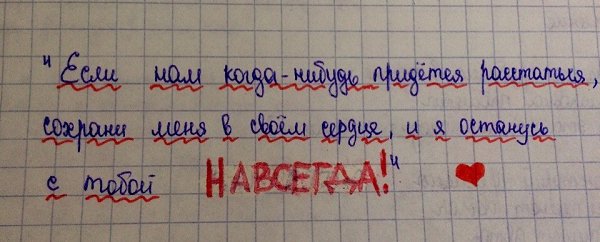 "Если нам когда-нибудь придётся расстаться,
сохрани меня в своём сердце, и я останусь
с тобой НАВСЕГДА!" ❤